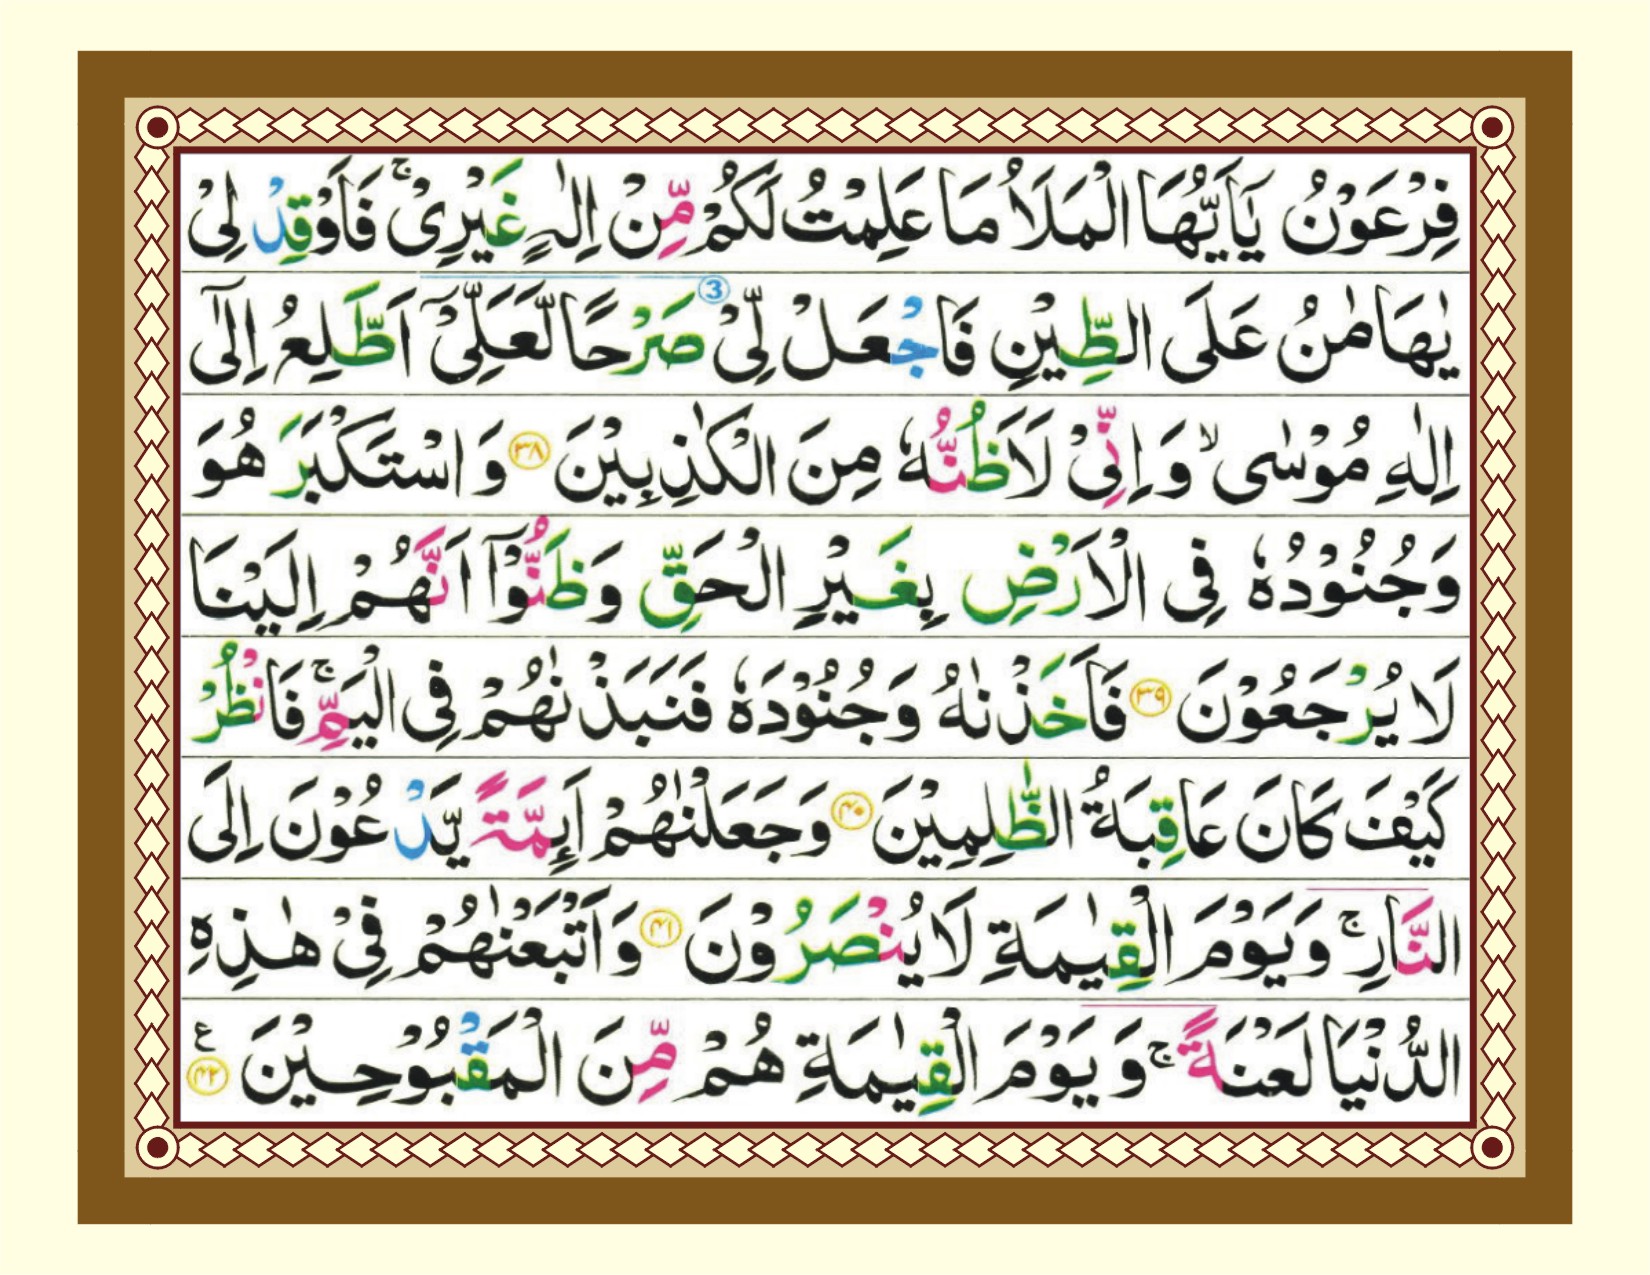 فِرْعَوْنُ يٰۤاَيُّهَا الْمَلَاُ مَا عَلِمْتُ لَكُمْ مِّنْ اِلٰهٍ غَيْرِيْ ۚ فَاَوْقِدْ لِيْ
يٰهَامٰنُ عَلَى الطِّيْنِ فَاجْعَلْ لِّيْ صَرْحًا لَّعَلِّيْۤ اَطَّلِعُ اِلٰۤى ③
اِلٰهِ مُوْسٰى ۙ وَ اِنِّيْ لَاَظُنُّهٗ مِنَ الْكٰذِبِيْنَ ﴿۳۸﴾ وَ اسْتَكْبَرَ هُوَ
وَ جُنُوْدُهٗ فِى الْاَرْضِ بِغَيْرِ الْحَقِّ وَ ظَنُّوْۤا اَنَّهُمْ اِلَيْنَا
لَا يُرْجَعُوْنَ ﴿۳۹﴾ فَاَخَذْنٰهُ وَ جُنُوْدَهٗ فَنَبَذْنٰهُمْ فِى الْيَمِّ ۚ فَانْظُرْ
كَيْفَ كَانَ عَاقِبَةُ الظّٰلِمِيْنَ ﴿۴۰﴾ وَ جَعَلْنٰهُمْ اَىِٕمَّةً يَّدْعُوْنَ اِلَى
النَّارِ ۚ وَ يَوْمَ الْقِيٰمَةِ لَا يُنْصَرُوْنَ ﴿۴۱﴾ وَ اَتْبَعْنٰهُمْ فِيْ هٰذِهِ
الدُّنْيَا لَعْنَةً ۚ وَ يَوْمَ الْقِيٰمَةِ هُمْ مِّنَ الْمَقْبُوْحِيْنَ ﴿۴۲﴾ ع